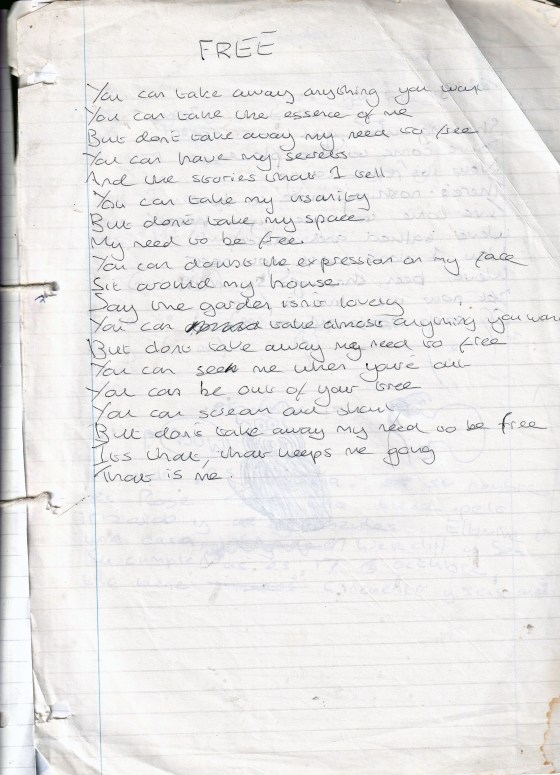 FREE
You can take away anything you wan
You can take the essence of me
But don't take away my need to free
You can have my secrets
And the stories that I tell
You can take my insanity
But don't take my space
My need to be free
You can doubt the expression on my face
Sit around my house
Say the garden isn't lovely
You can take almost anything you wan
But don't take away my need to free
You can seek me when you're out
You can be out of your tree
You can scream and shout
But don't take away my need to be free
Its that, that keeps me going
That is me.